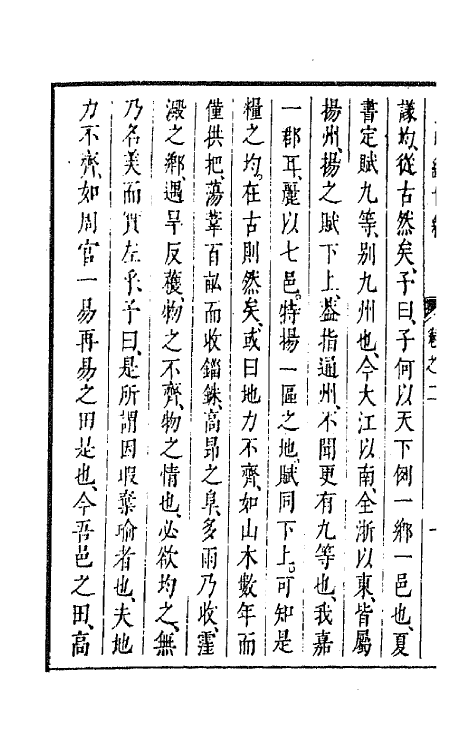 卷之二
議均、從古然矣、予曰、子何以天下例一鄉一邑也、夏
書定賦九等、别九州也、今大江以南、全浙以東、皆屬
揚州、揚之賦下上、葢指通州、不聞更有九等也、我嘉
一郡耳、麗以七邑。特揚一區之地、賦同下上。可知是
糧之均。在古則然矣、或曰地力不齊、如山木數年而
僅拱把、蕩葦百畝而收錙銖、高昂之阜、多雨乃收、窪
澱之鄉、遇旱反穫、物之不齊、物之情也、必欲均之、無
乃名美而實左乎、予曰、是所謂因瑕棄瑜者也、夫地
力不齊、如周官一易再易之田是也、今吾邑之田、高